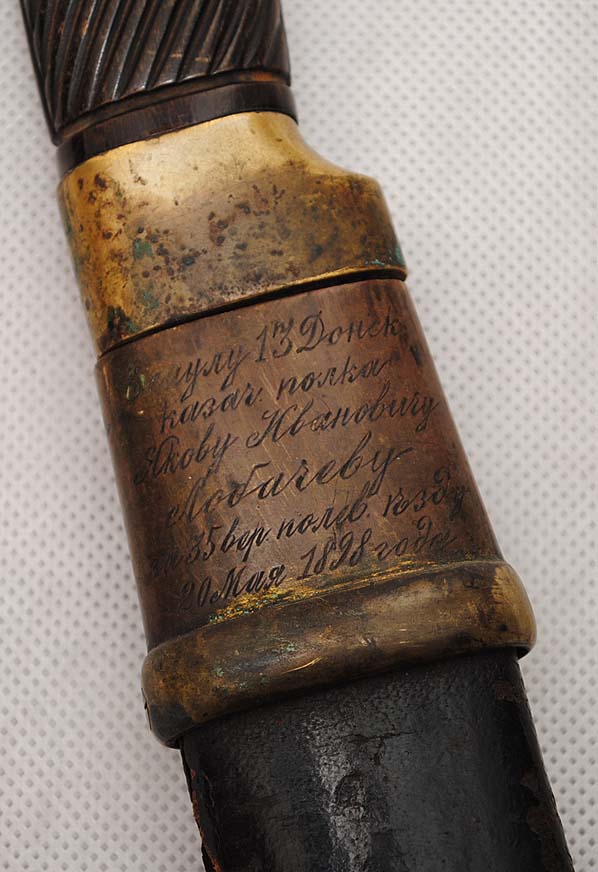 Есаулу 13 Донск
казач. полка
Якову Ивановичу
Лобачеву
за 35 вер. полев. ѣзду
20 Мая 1898 года